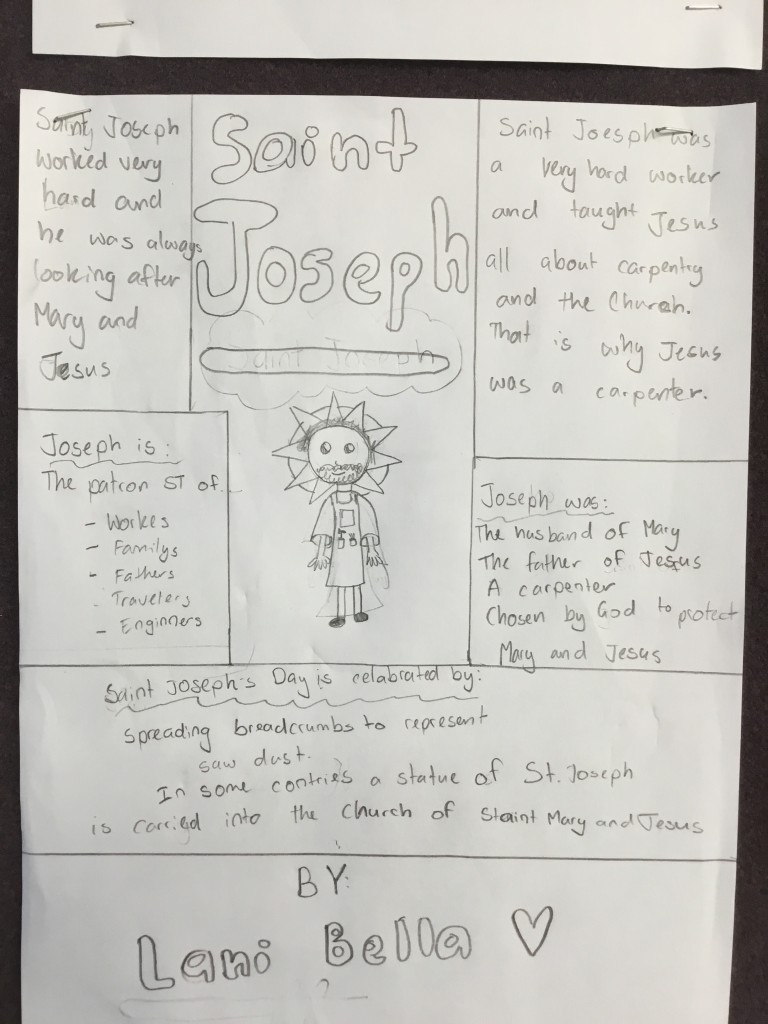 Saint Joseph
worked very
hard and
he was always
looking after
Mary and
Jesus
Saint
Joseph
Saint Joseph
Saint Joesph was
a very hard worker
and taught Jesus
all about carpentry
and the Church.
That is why Jesus
was a carpenter.
Joseph is:
The patron ST of..
- Workes
- Familys
- Fathers
- Travelers
- Enginners
Joseph was:
The husband of Mary
The father of Jesus
A carpenter
Chosen by God to protect
Mary and Jesus
Saint Joseph's Day is celabrated by:
Spreading breadcrumbs to represent
saw dust.
In some contries a statue of St. Joseph
is carried into the Church of Staint Mary and Jesus
BY:
Lani Bella ♡